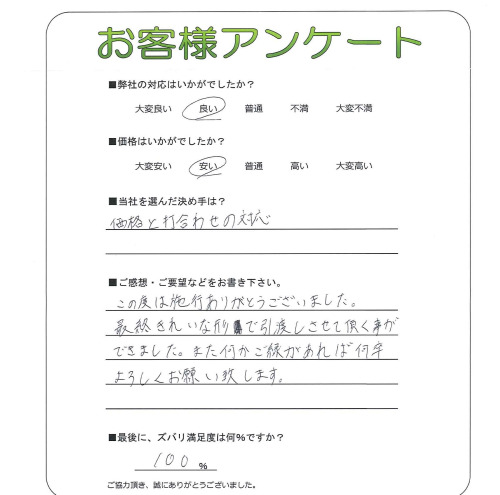 お客様アンケート
■弊社の対応はいかがでしたか？
大変良い 良い 普通 不満 大変不満
■価格はいかがでしたか？
大変安い 安い 普通 高い 大変高い
■当社を選んだ決め手は？
価格と打合わせの対応
■ご感想・ご要望などをお書き下さい。
この度は施行ありがとうございました。
最終きれいな形で引渡しさせて頂く事が
できました。また何かご縁があれば何卒
よろしくお願い致します。
■最後に、ズバリ満足度は何％ですか？
100 %
ご協力頂き、誠にありがとうございました。